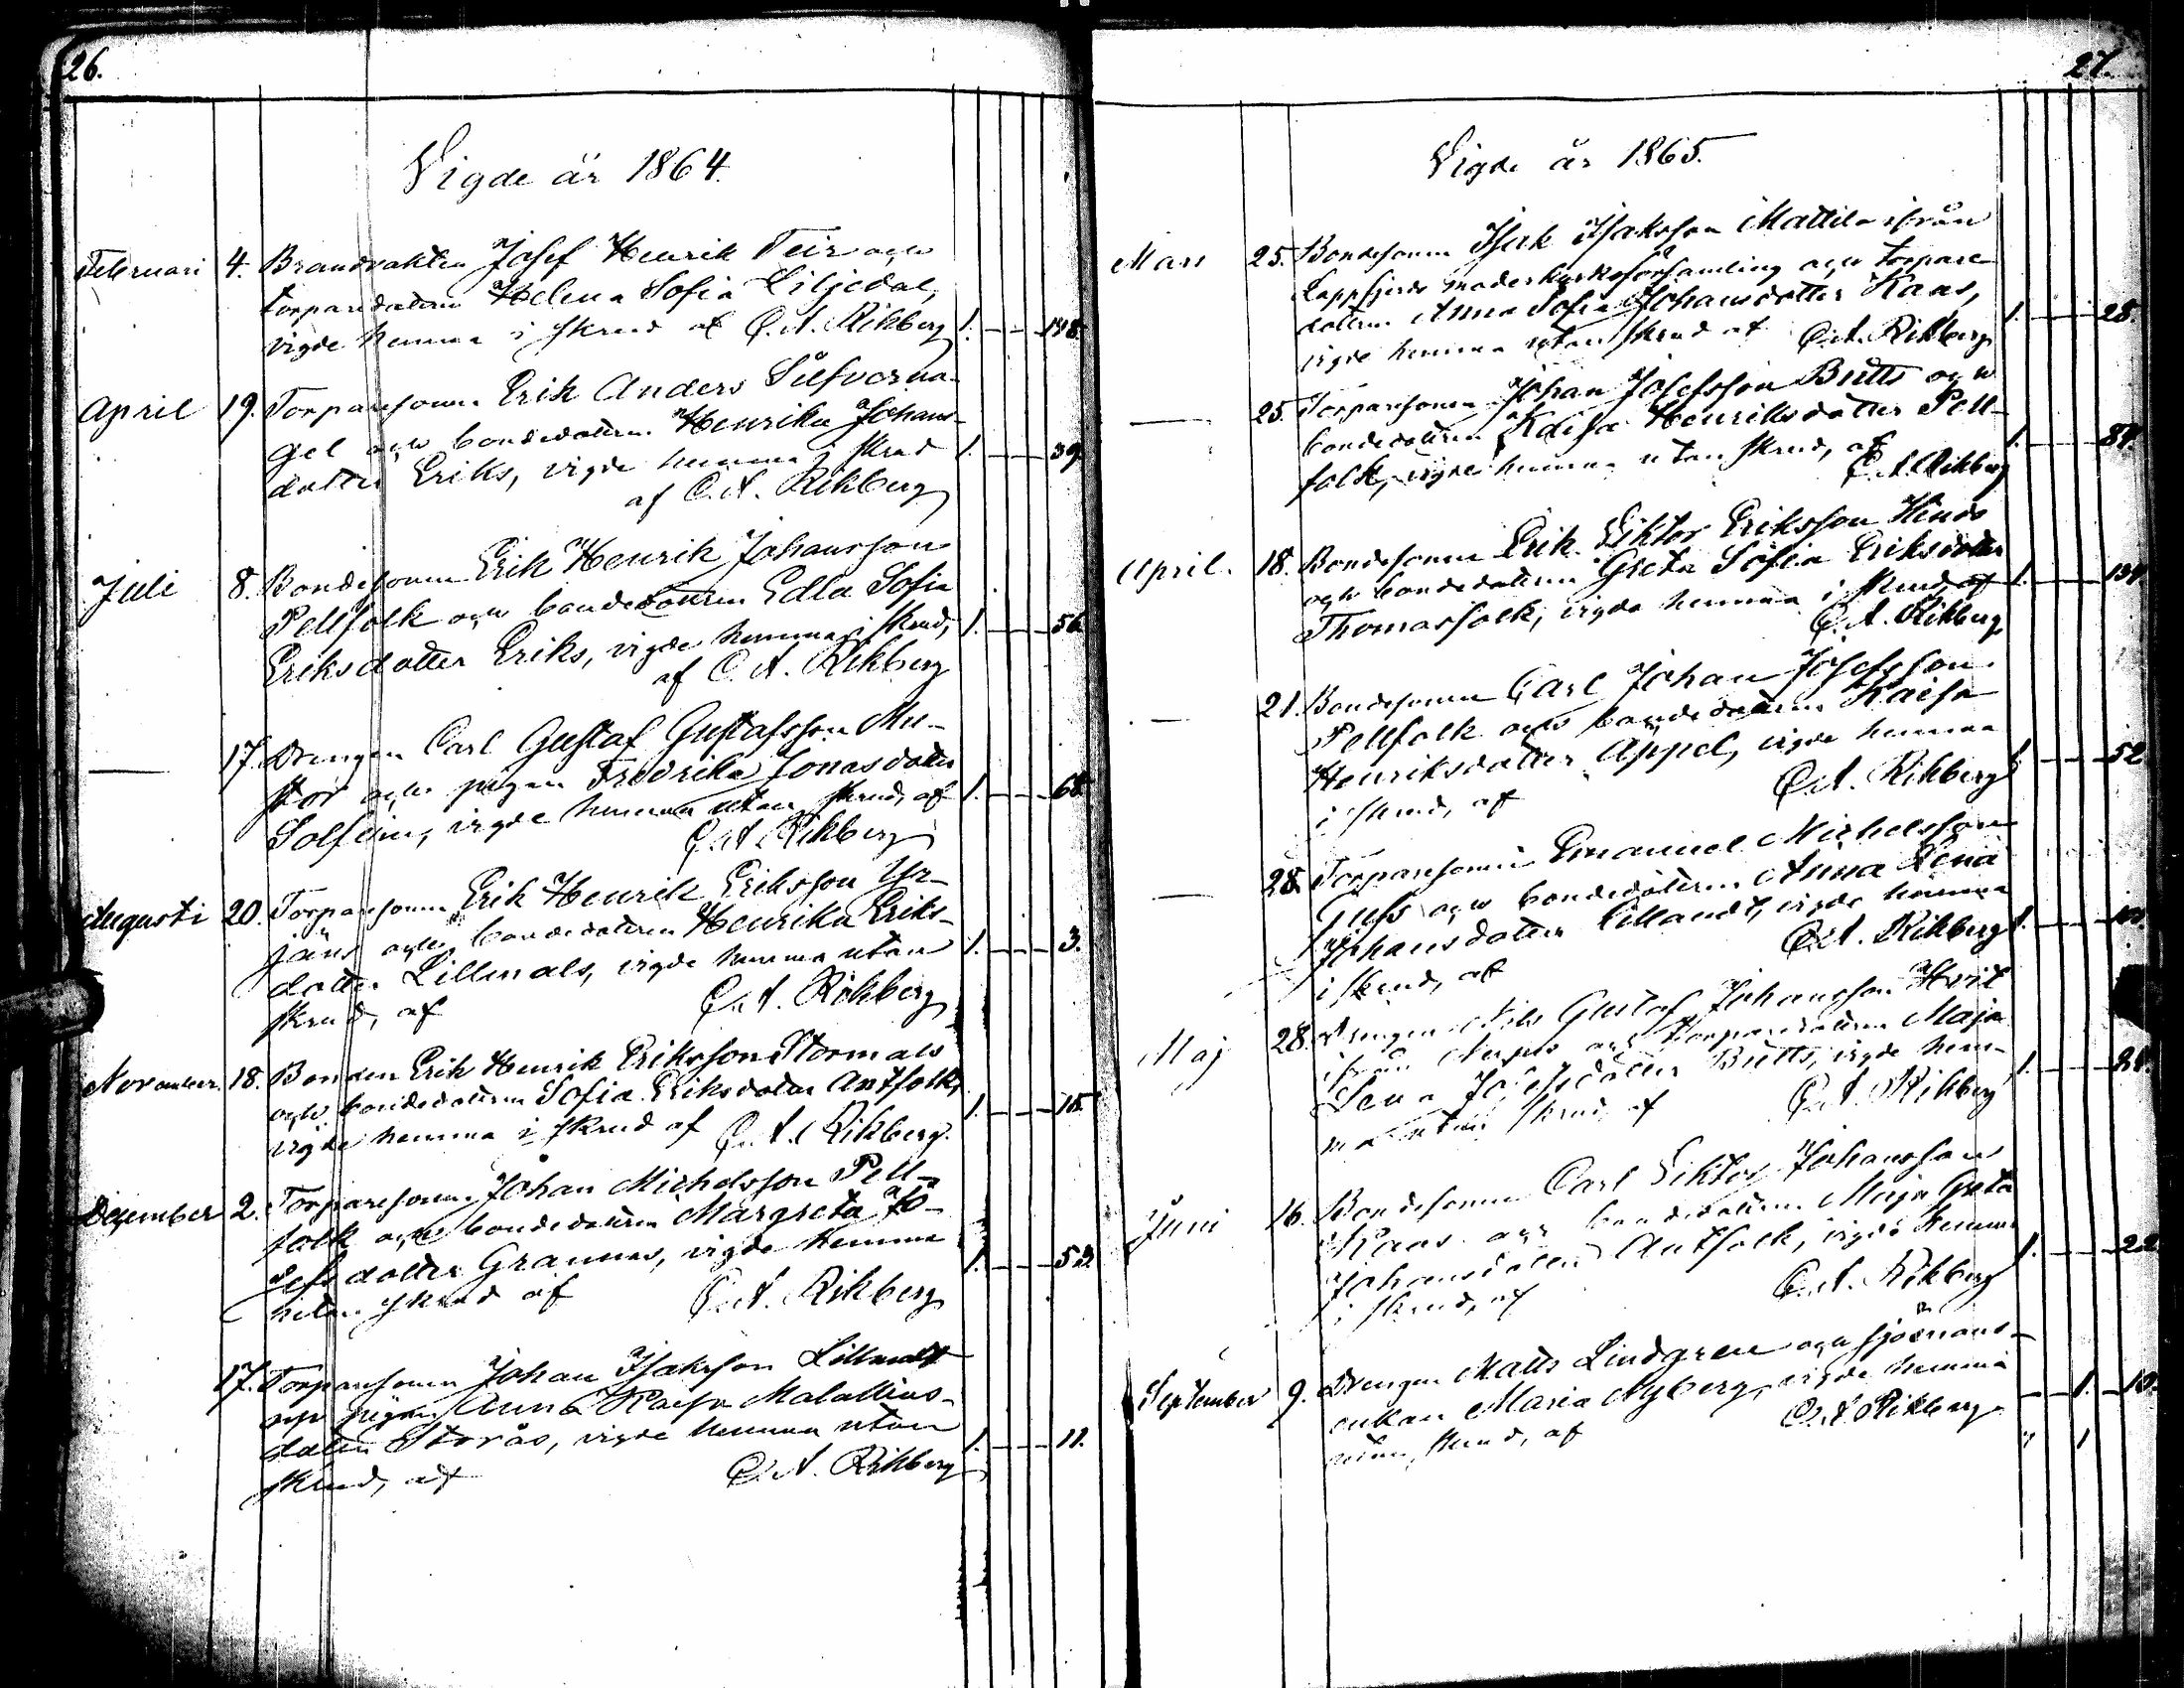 26.
Vigde år 1864.
Februari 4. Brandvakten Josef Henrik Teir och
torparedottren Helena Sofia Liljedal,
vigde hemma i skrud af C. A. Rikberg 1. 148.
April 19. Torparesonen Erik Anders Silfverna-
gel och bondedottren Henrika Johans-
dotter Eriks, vigde hemma i skrud 1. 39.
af C. A. Rikberg
Juli 8. Bondesonen Erik Henrik Johansson
Pellfolk och bondedottren Edla Sofia
Eriksdotter Eriks, vigde hemma i skrud, 1. 56.
af C. A. Rikberg
— 17. Drengen Carl Gustaf Gustafsson Mu-
stor och pigan Fredrika Jonasdotter
Solfein, vigde hemma utan skrud, af 1. 68.
C. A. Rikberg
Augusti 20. Torparesonen Erik Henrik Eriksson Yr-
jäns och bondedottren Henrika Eriks-
dotter Lillmals, vigde hemma utan 1. 3.
skrud, af C. A. Rikberg
November 18. Bonden Erik Henrik Eriksson Stormals
och bondedottren Sofia Eriksdotter Antfolk,
vigde hemma i skrud af C. A. Rikberg. 1. 15.
December 2. Torparesonen Johan Michelsson Pell-
folk och bondedottren Margreta Jo-
sefsdotter Grannas, vigde hemma
utan skrud af C. A. Rikberg 1. 53.
17. Torparesonen Johan Isaksson Lillmals
och pigan Anna Kaisa
dotter Storås, vigde hemma utan
skrud, af C. A. Rikberg 1. 11.
27.
Vigde år 1865.
Mars 25. Bondesonen Isak Isaksson Mattila ifrån
Lappfjerds moderkyrkoförsamling och torpare-
dottren Anna Sofia Johansdotter Kaas,
vigde hemma utan skrud af C. A. Rikberg 1. 28.
— 25. Torparesonen Johan Josefsson Butts och
bondedottren Kaisa Henriksdotter Pell-
folk, vigde hemma utan skrud, af 1. 87.
C. A. Rikberg
April. 18. Bondesonen Erik Viktor Eriksson Hinds
och bondedottren Greta Sofia Eriksdotter
Thomasfolk, vigda hemma i skrud, af 1. 134.
C. A. Rikberg
— 21. Bondesonen Carl Johan Josefsson
Pellfolk och bondedottren Kaisa
Henriksdotter Appel, vigde hemma
i skrud, af C. A. Rikberg 1. 52
— 28. Torparesonen Emanuel Michelsson
och bondedottren Anna Lena
Johansdotter Lillandt, vigde hemma
i skrud, af C. A. Rikberg 1.
Maj 28. Drengen Nils Gustaf Johansson Hvit
ifrån och torparedottren Maja
Lena Josefsdotter Butts, vigde hem-
ma utan skrud, af C. A. Rikberg 1. 28.
Juni 16. Bondesonen Carl Viktor Johansson
Kaas och bondedottren Maja Greta
Johansdotter Antfolk, vigde hemma
i skrud, af C. A. Rikberg 1. 22
September 9. Drengen Matts Lindgren och sjömans-
enkan Maria Nyberg, vigde hemma
utan skrud, af C. A. Rikberg 1. 10.